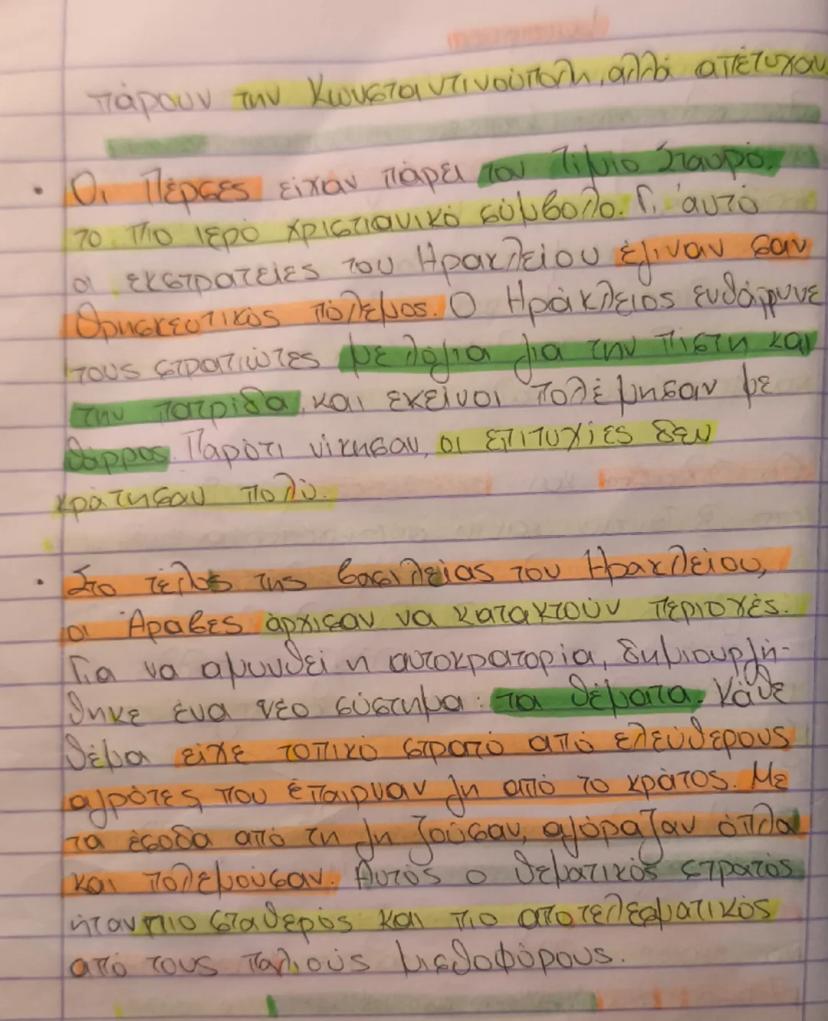 πάρουν την Κωνσταντινούπολη, αλλά απέτυχαν
• Οι Πέρσες είχαν πάρει τον Τίμιο Σταυρό,
το πιο ιερό χριστιανικό σύμβολο. Γι' αυτό
οι εκστρατείες του Ηρακλείου έγιναν σαν
θρησκευτικός πόλεμος. Ο Ηράκλειος ενθάρρυνε
τους στρατιώτες με λόγια για την πίστη και
την πατρίδα, και εκείνοι πολέμησαν με
θάρρος. Παρότι νίκησαν, οι επιτυχίες δεν
κράτησαν πολύ.
• Στο τέλος της βασιλείας του Ηρακλείου,
οι Άραβες άρχισαν να κατακτούν περιοχές.
Για να αμυνθεί η αυτοκρατορία, δημιουργή-
θηκε ένα νέο σύστημα: τα θέματα. Κάθε
θέμα είχε τοπικό στρατό από ελεύθερους
αγρότες, που έπαιρναν γη από το κράτος. Με
τα έσοδα από τη γη ζούσαν, αγόραζαν όπλα
και πολεμούσαν. Αυτός ο θεματικός στρατός
ήταν πιο σταθερός και πιο αποτελεσματικός
από τους παλιούς μισθοφόρους.